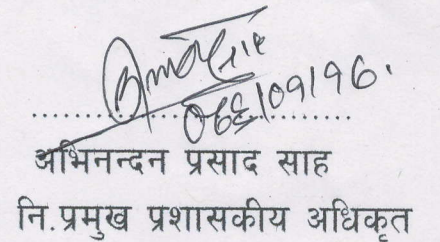 ०६६।०१।१६.
....................................
अभिनन्दन प्रसाद साह
नि.प्रमुख प्रशासकीय अधिकृत